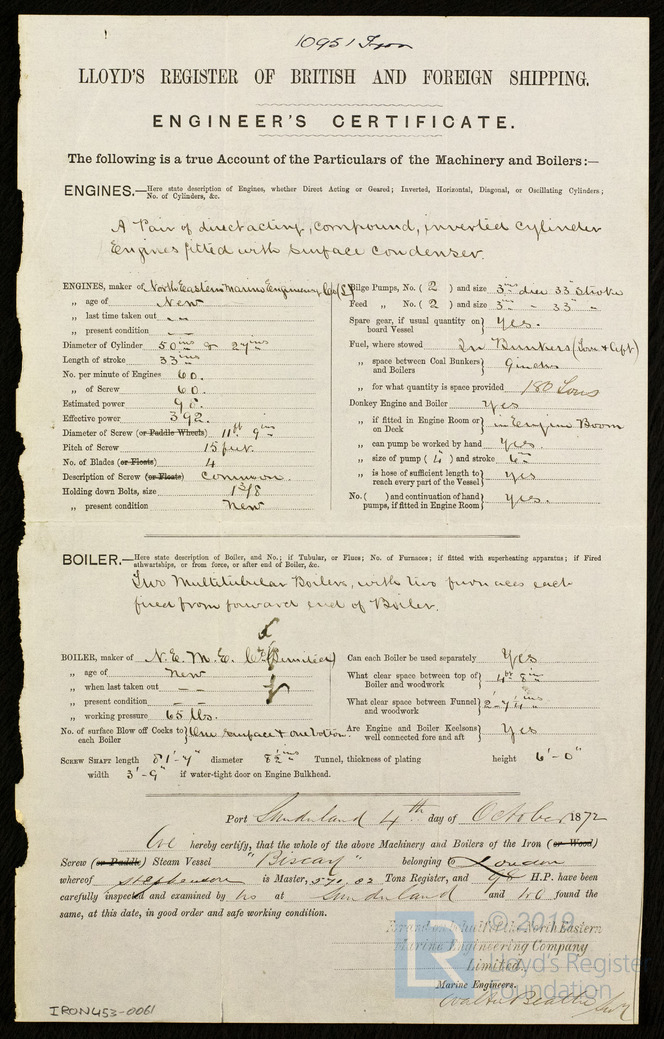 10951 Iron
LLOYD'S REGISTER OF BRITISH AND FOREIGN SHIPPING.
ENGINEER'S CERTIFICATE.
The following is a true Account of the Particulars of the Machinery and Boilers:—
ENGINES.—Here state description of Engines, whether Direct Acting or Geared; Inverted, Horizontal, Diagonal, or Oscillating Cylinders; No. of Cylinders, &c.
A Pair of direct acting, compound, inverted cylinder
Engines fitted with surface condenser.
ENGINES, maker of North Eastern Marine Engineering Co (Ld)
„ age of New
„ last time taken out — —
„ present condition — —
Diameter of Cylinder 50 ins & 27 ins
Length of stroke 33 ins
No. per minute of Engines 60.
„ of Screw 60.
Estimated power 98.
Effective power 392.
Diameter of Screw (or Paddle Wheels) 11ft 9ins
Pitch of Screw 15 feet.
No. of Blades (or Floats) 4
Description of Screw (or Floats) Common.
Holding down Bolts, size 1 3/8
„ present condition New
Bilge Pumps, No. ( 2 ) and size 3 ins dia 33 stroke
Feed „ No. ( 2 ) and size 3 ins - 33 -
Spare gear, if usual quantity on board Vessel } Yes.
Fuel, where stowed In Bunkers (Fore & Aft)
„ space between Coal Bunkers and Boilers } 9 inches
„ for what quantity is space provided 180 Tons
Donkey Engine and Boiler Yes
„ if fitted in Engine Room or on Deck } in Engine Room
„ can pump be worked by hand Yes.
„ size of pump ( 4 ) and stroke 6 ins
„ is hose of sufficient length to reach every part of the Vessel } Yes
No. ( ) and continuation of hand pumps, if fitted in Engine Room } Yes.
BOILER.—Here state description of Boiler, and No.; if Tubular, or Flues; No. of Furnaces; if fitted with superheating apparatus; if Fired athwartships, or from force, or after end of Boiler, &c.
Two Multitubular Boilers, with two furnaces each
fired from forward end of Boiler.
BOILER, maker of N. E. M. E. Co (Limited)
„ age of New
„ when last taken out — —
„ present condition — —
„ working pressure 65 lbs.
No. of surface Blow off Cocks to each Boiler } One surface & one bottom.
Can each Boiler be used separately Yes
What clear space between top of Boiler and woodwork } 4ft 8in
What clear space between Funnel and woodwork }
Are Engine and Boiler Keelsons well connected fore and aft } Yes
SCREW SHAFT length 81'-7" diameter 8½ ins Tunnel, thickness of plating height 6'-0"
width 3'-9" if water-tight door on Engine Bulkhead.
Port Sunderland 4th day of October 1872
We hereby certify, that the whole of the above Machinery and Boilers of the Iron (or Wood)
Screw (or Paddle) Steam Vessel "Biscay" belonging to London
whereof Stephenson is Master, 570.82 Tons Register, and 98 H.P. have been
carefully inspected and examined by us at Sunderland and we found the
same, at this date, in good order and safe working condition.
For and on behalf of the North Eastern
Marine Engineering Company
Limited.
Marine Engineers.
Walter Beattie
IRON453-0061
LR
© 2019
Lloyd's Register
Foundation